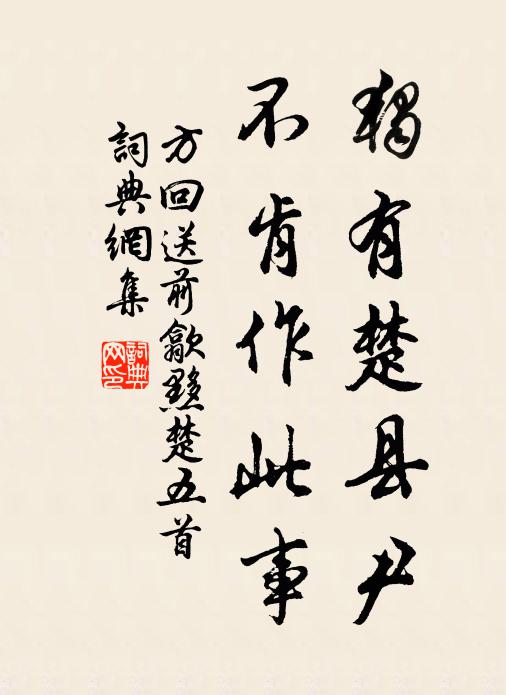 獨有楚县尹
不肯作此事
方回送前歙黟楚五首
詞典網集
詞典网印